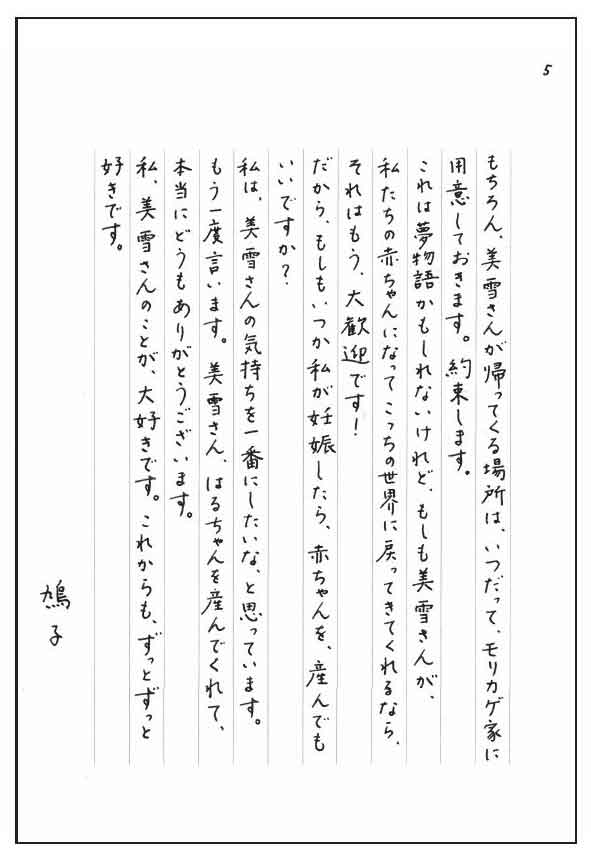 5
もちろん、美雪さんが帰ってくる場所は、いつだって、モリカゲ家に
用意しておきます。約束します。
これは夢物語かもしれないけれど、もしも美雪さんが、
私たちの赤ちゃんになってこっちの世界に戻ってきてくれるなら、
それはもう、大歓迎です！
だから、もしもいつか私が妊娠したら、赤ちゃんを、産んでも
いいですか？
私は、美雪さんの気持ちを一番にしたいな、と思っています。
もう一度言います。美雪さん、はるちゃんを産んでくれて、
本当にどうもありがとうございます。
私、美雪さんのことが、大好きです。これからも、ずっとずっと
好きです。
鳩子